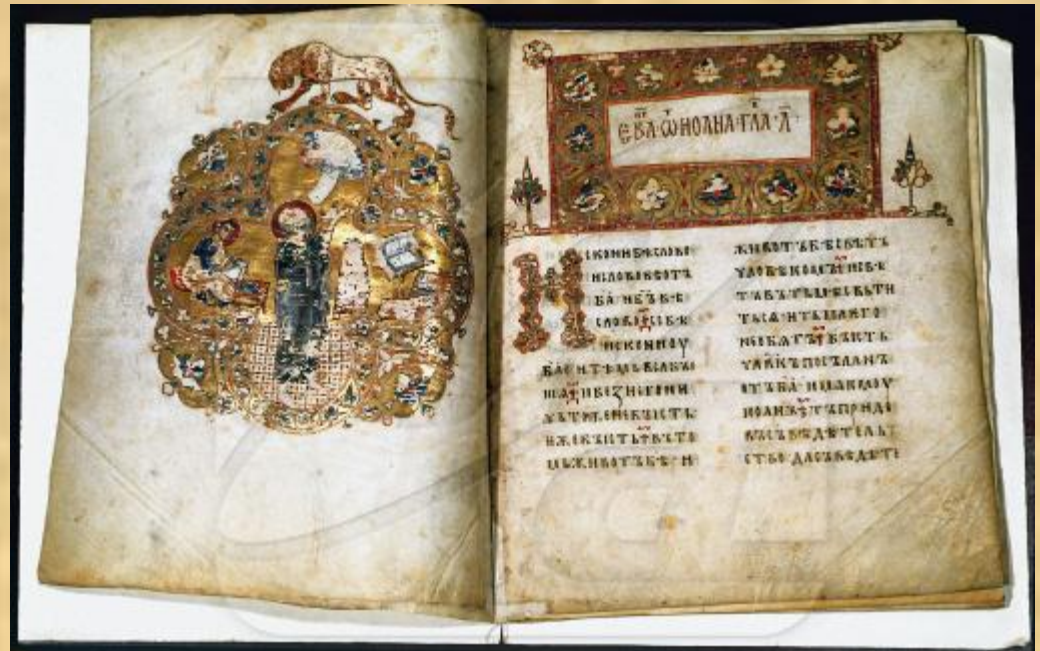 ЕВА·Ѿ ИОАНА·ГЛА·А҃
ИСКОНИ БѢ СЛОВО
И СЛОВО БѢ ОТЪ
БА҃·И БЪ҃ БѢ
СЛОВО·СЕ БѢ
ИСКОНИ ОУ
БА҃·И ТѢМЬ ВСѦ БЫ
ШѦ·И БЕЗ НЕГО НИ
ЧЬТОЖЕ НЕ БЫСТЬ
ѤЖЕ БЫСТЬ·ВЪ ТО
МЬ ЖИВОТЪ БѢ·И
ЖИВОТЪ БѢ СВѢТЪ
ЧЛОВѢКОМЪ·И СВѢ
ТЪ ВЪ ТЬМѢ СВЬТИ
ТЬСѦ·И ТЬМА ѤГО
НЕ ОБѦТЪ·БЫСТЬ
ЧЛК҃Ъ ПОСЪЛАНЪ
ОТЪ БА҃·ИМѦ ѤМОУ
ИОАНЪ·ТЪ ПРИДЕ
ВЪ СЪВѢДѢТЕЛЬ
СТВО·ДА СЪВѢДѢТЕ